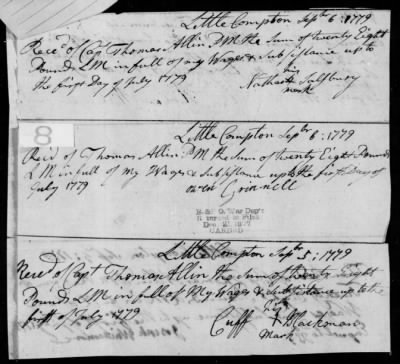 Little Compton Septr 6: 1779
Recd of Capt Thomas Allin PM the Sum of twenty Eight
Pounds LM in full of my Wages & Subsistance up to
the first Day of July 1779
his
Nathan Salsbury
mark
8
Little Compton Septr 6: 1779
Recd of Thomas Allin PM the Sum of twenty Eight Pounds
LM in full of My Wages & Subsistance up to the first Day of
July 1779
Grinnell
R & P O. War Dep't
CARDED
Little Compton Septr 5: 1779
Recd of Capt Thomas Allin the Sum of twenty Eight
Pounds LM in full of My Wages & Subsistance up to the
first of July 1779
his
Cuff + Blackman
Mark